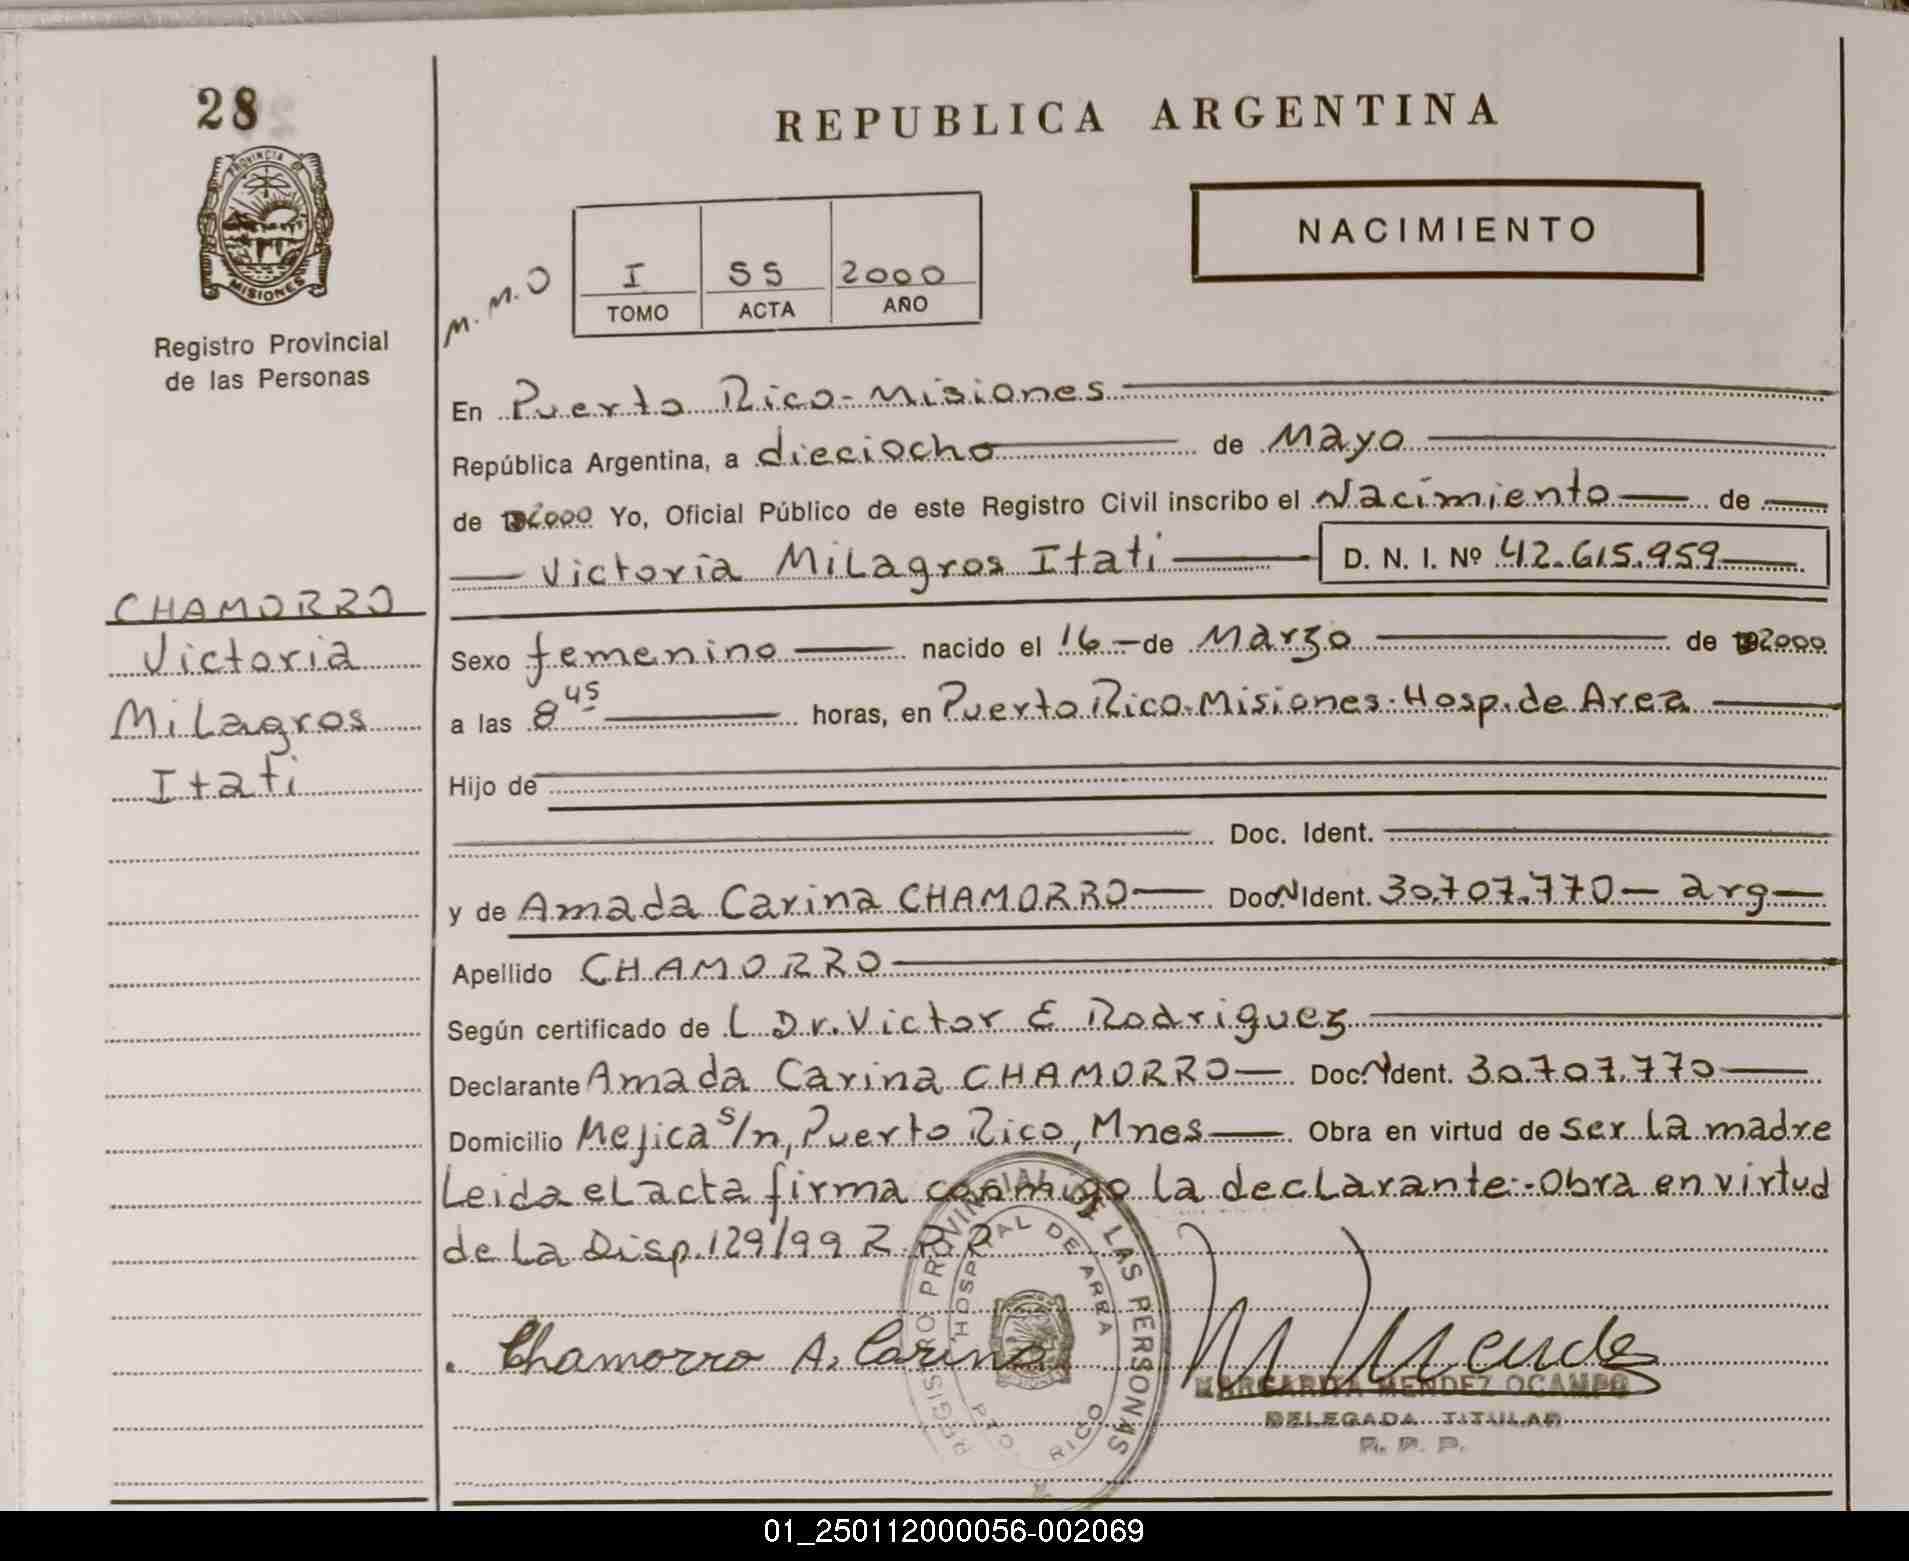 28
PROVINCIA DE
MISIONES
Registro Provincial
de las Personas
REPUBLICA ARGENTINA
NACIMIENTO
M.M.O
I 55 2000
TOMO ACTA AÑO
En Puerto Rico-Misiones
República Argentina, a dieciocho de Mayo
de 2000 Yo, Oficial Público de este Registro Civil inscribo el Nacimiento de
Victoria Milagros Itati D. N. I. Nº 42.615.959
CHAMORRO
Victoria
Milagros
Itati
Sexo femenino nacido el 16 de Marzo de 2000
a las 8 45 horas, en Puerto Rico-Misiones-Hosp. de Area
Hijo de
Doc. Ident.
y de Amada Carina CHAMORRO Doc. N Ident. 30.707.770 - arg
Apellido CHAMORRO
Según certificado de L Dr. Victor E Rodriguez
Declarante Amada Carina CHAMORRO Doc. N Ident. 30.707.770
Domicilio Mejica s/n, Puerto Rico, Mnes Obra en virtud de ser la madre
Leida el acta firma conmigo la declarante.-Obra en virtud
de la Disp. 129/99 R.P.P
REGISTRO PROVINCIAL DE LAS PERSONAS
HOSPITAL DE AREA
PTO RICO
Chamorro A. Carina
M Mendez
MARGARITA MENDEZ OCAMPO
DELEGADA TITULAR
R. P. P.
01_250112000056-002069